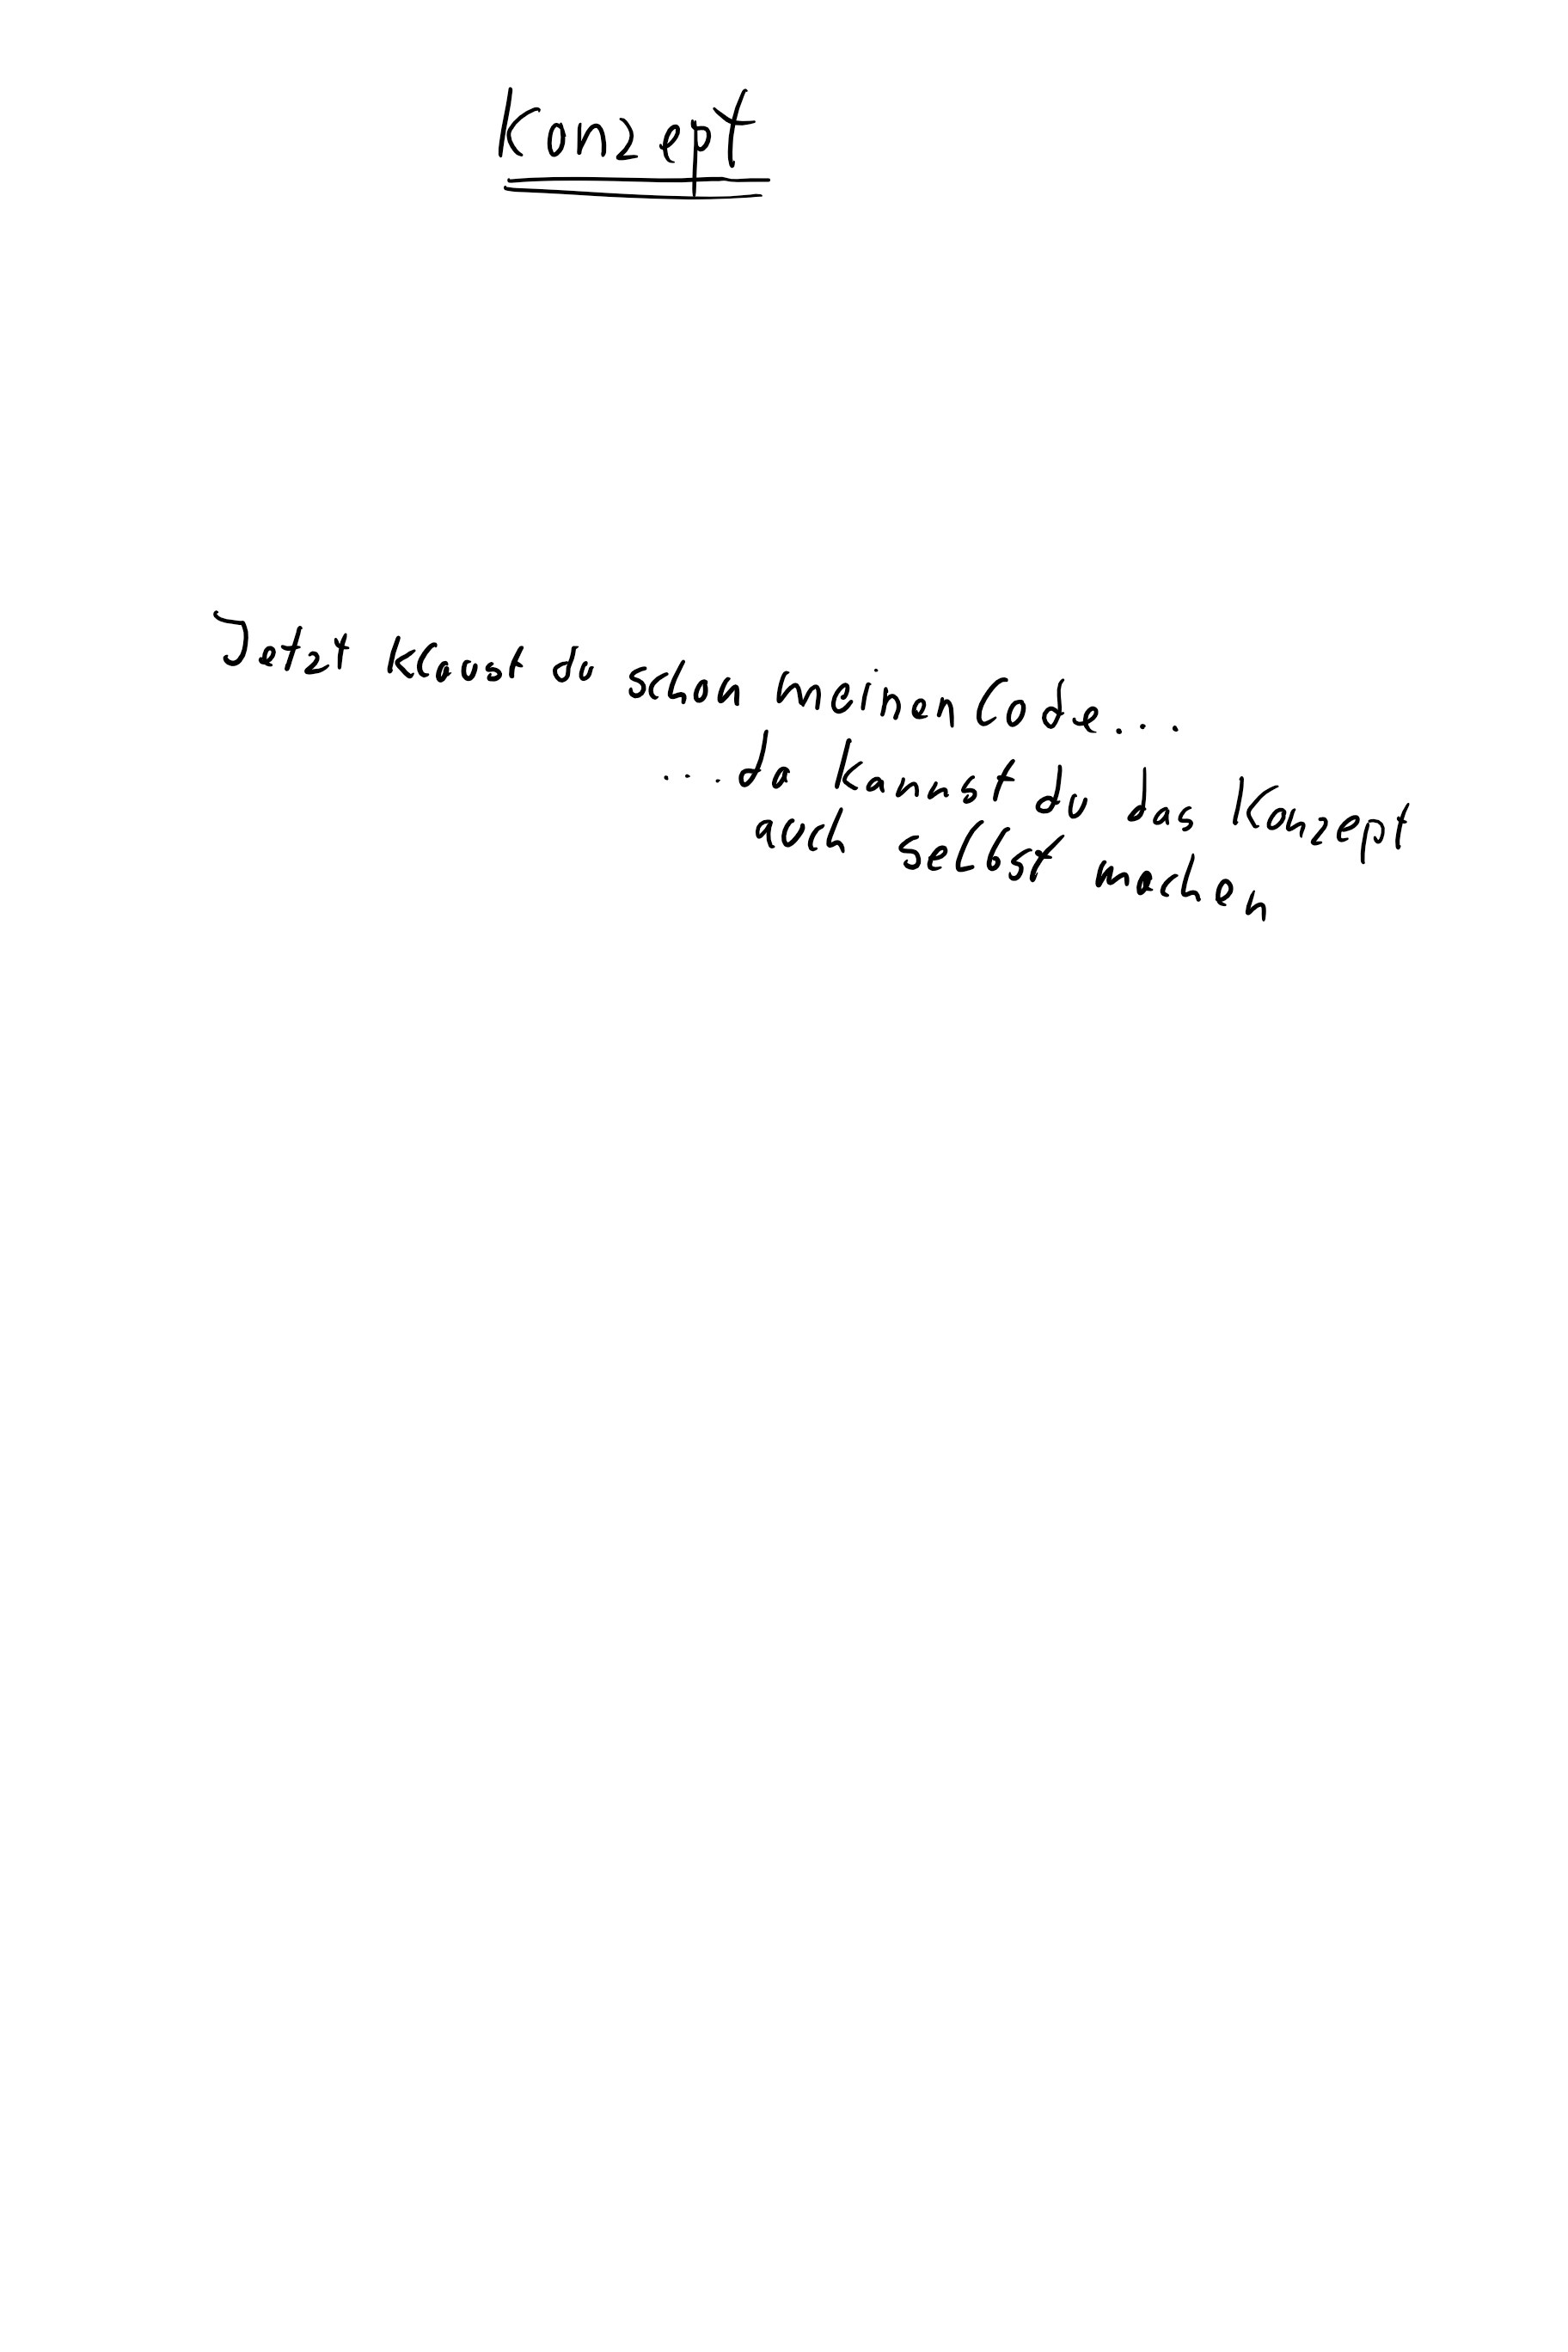 Konzept
Jetzt klaust du schon meinen Code...
...da kannst du das Konzept
auch selbst machen